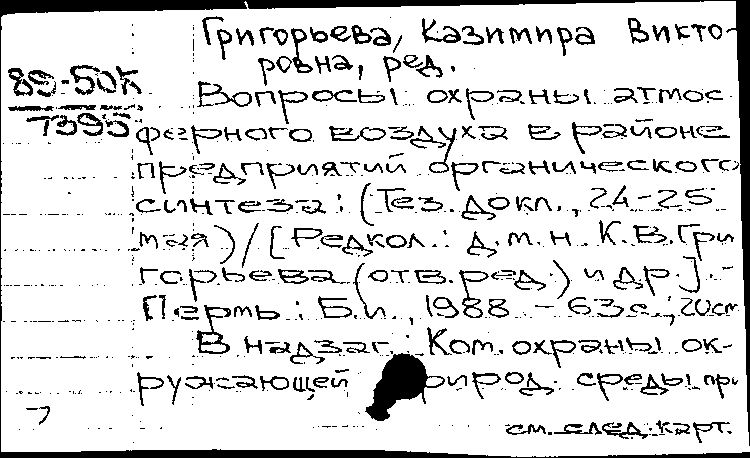 Григорьева, Казимира Викто-
ровна, ред.
89-50К
7395
Вопросы охраны атмос
ферного воздуха в районе
предприятий органического
синтеза: (Тез. докл., 24-25
мая) / [Редкол.: д.м.н. К.В. Гри
горьева (отв. ред.) и др.]. -
Пермь: Б.и., 1988 - 63 с.; 20 см
В надзаг.: Ком. охраны ок-
ружающей природ. среды при
см. след. карт.